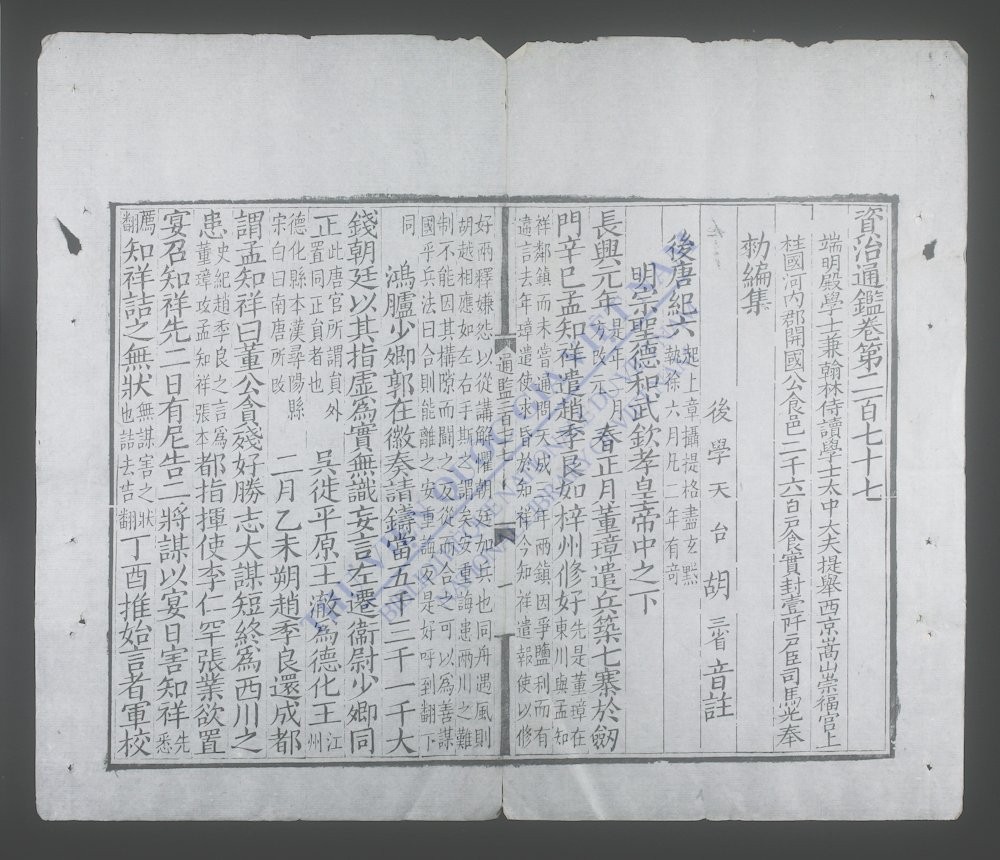 資治通鑑卷第二百七十七
端明殿學士兼翰林侍讀學士太中大夫提舉西京嵩山崇福宮上
柱國河內郡開國公食邑二千六百戶食實封壹阡戶臣司馬光奉
勑編集
後學天台胡三省音註
後唐紀六起上章攝提格盡玄黓
執徐六月凡二年有奇
明宗聖德和武欽孝皇帝中之下
長興元年是年二月
改元春正月董璋遣兵築七寨於劒
門辛巳孟知祥遣趙季良如梓州修好先是董璋在
東川與孟知
祥鄰鎮而未嘗通問天成二年兩鎮因爭鹽利而有
違言去年璋遣使求昏於知祥今知祥遣報使以修
通監二百七十七
好兩釋嫌怨以從講解懼朝廷加兵也同舟遇風則
胡越相應如左右手斯之謂矣安重誨患兩川之難
制不能因其搆隙而鬪之反從而合之可以為善謀
國乎兵法曰合則能離之安重誨反是好呼到翻下
同
鴻臚少卿郭在徽奏請鑄當五千三千一千大
錢朝廷以其指虛為實無識妄言左遷衛尉少卿同
正此唐官所謂員外
置同正員者也
吳徙平原王澈為德化王江
州
德化縣本漢尋陽縣
宋白曰南唐所改
二月乙未朔趙季良還成都
謂孟知祥曰董公貪殘好勝志大謀短終為西川之
患史紀趙季良之言為
董璋攻孟知祥張本都指揮使李仁罕張業欲置
宴召知祥先二日有尼告二將謀以宴日害知祥先
悉
薦
翻知祥詰之無狀無謀害之狀
也詰去吉翻丁酉推始言者軍校